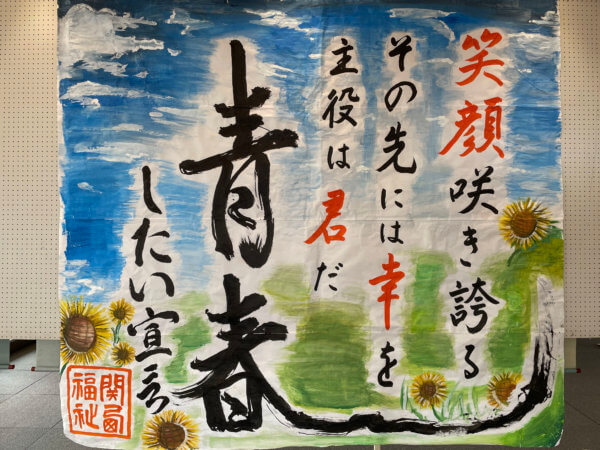 笑顔咲き誇る
その先には幸を
主役は君だ
青春
したい宣言
関
福祉